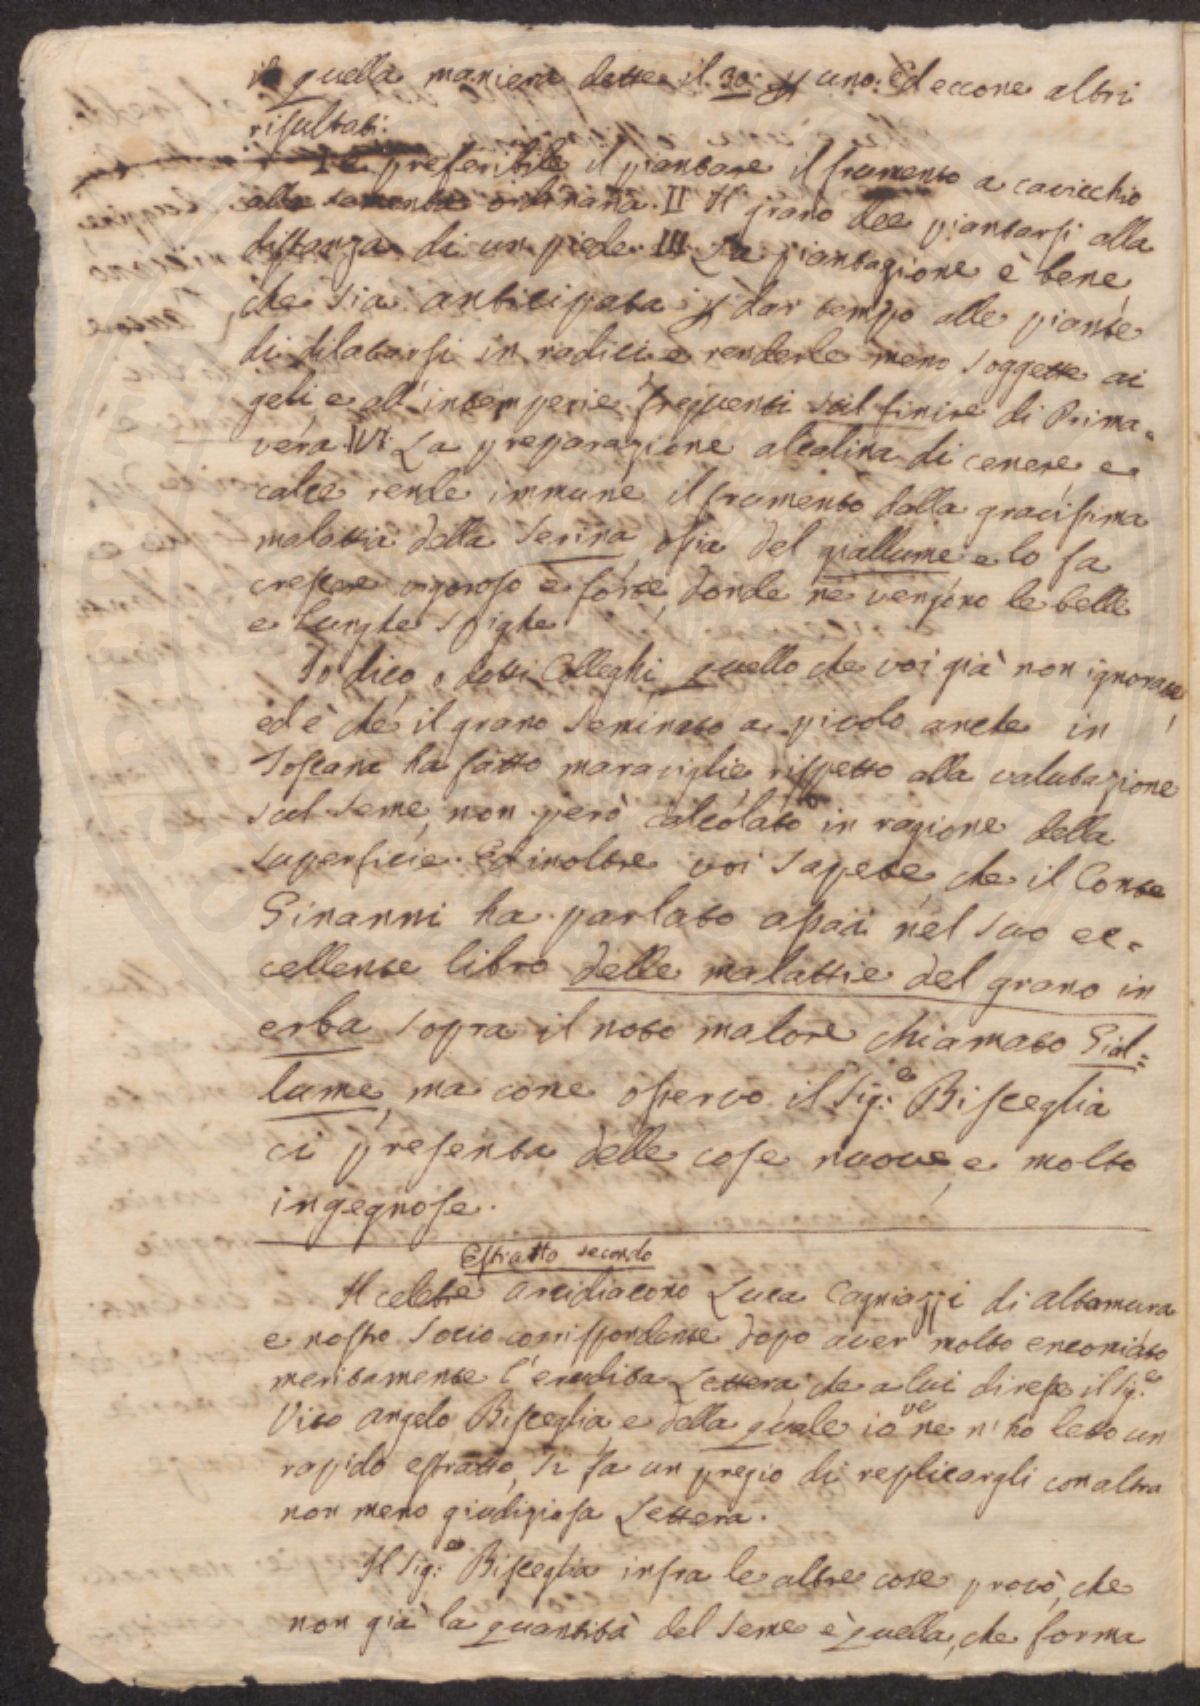 in quella maniera dette il 30: p uno: Ed eccone altri
risultati:
I è preferibile il piantare il frumento a cavicchio
alla sementa ordinaria. II Il grano dee piantarsi alla
distanza di un piede. III La piantagione è bene,
che sia anticipata p dar tempo alle piante
di dilatarsi in radici e renderle meno soggette ai
geli e all'intemperie frequenti sul finire di Prima-
vera IV: La preparazione alcalina di cenere, e
calce rende immune il frumento dalla gravissima
malattia della Serira, ossia del giallume e lo fa
crescere vigoroso e forte, donde ne vengono le belle
e lunghe spighe
Io dico, o dotti Colleghi, quello che voi già non ignorate,
ed è che il grano seminato a piolo anche in
Toscana ha fatto maraviglie, rispetto alla valutazione
sul seme, non però calcolato in ragione della
superficie. Ed inoltre voi sapete, che il Conte
Ginanni ha parlato assai nel suo ec-
cellente libro delle malattie del grano in
erba sopra il noto malore chiamato Gial=
lume, ma come osservo il Sig:e Bisceglia
ci presenta delle cose nuove, e molto
ingegnose.
Estratto secondo
Il celebre arcidiacono Luca Cagniazzi di altamura
e nostro socio corrispondente dopo aver molto encomiato
meritamente l'erudita Lettera, che a lui diresse il Sig:e
Vito Angelo Bisceglia, e della quale io ve ne n'ho letto un
rapido estratto, si fa un pregio di replicargli con altra
non meno giudiziosa Lettera.
Il Sig:e Bisceglia infra le altre cose provò, che
non già la quantità del seme è quella, che forma